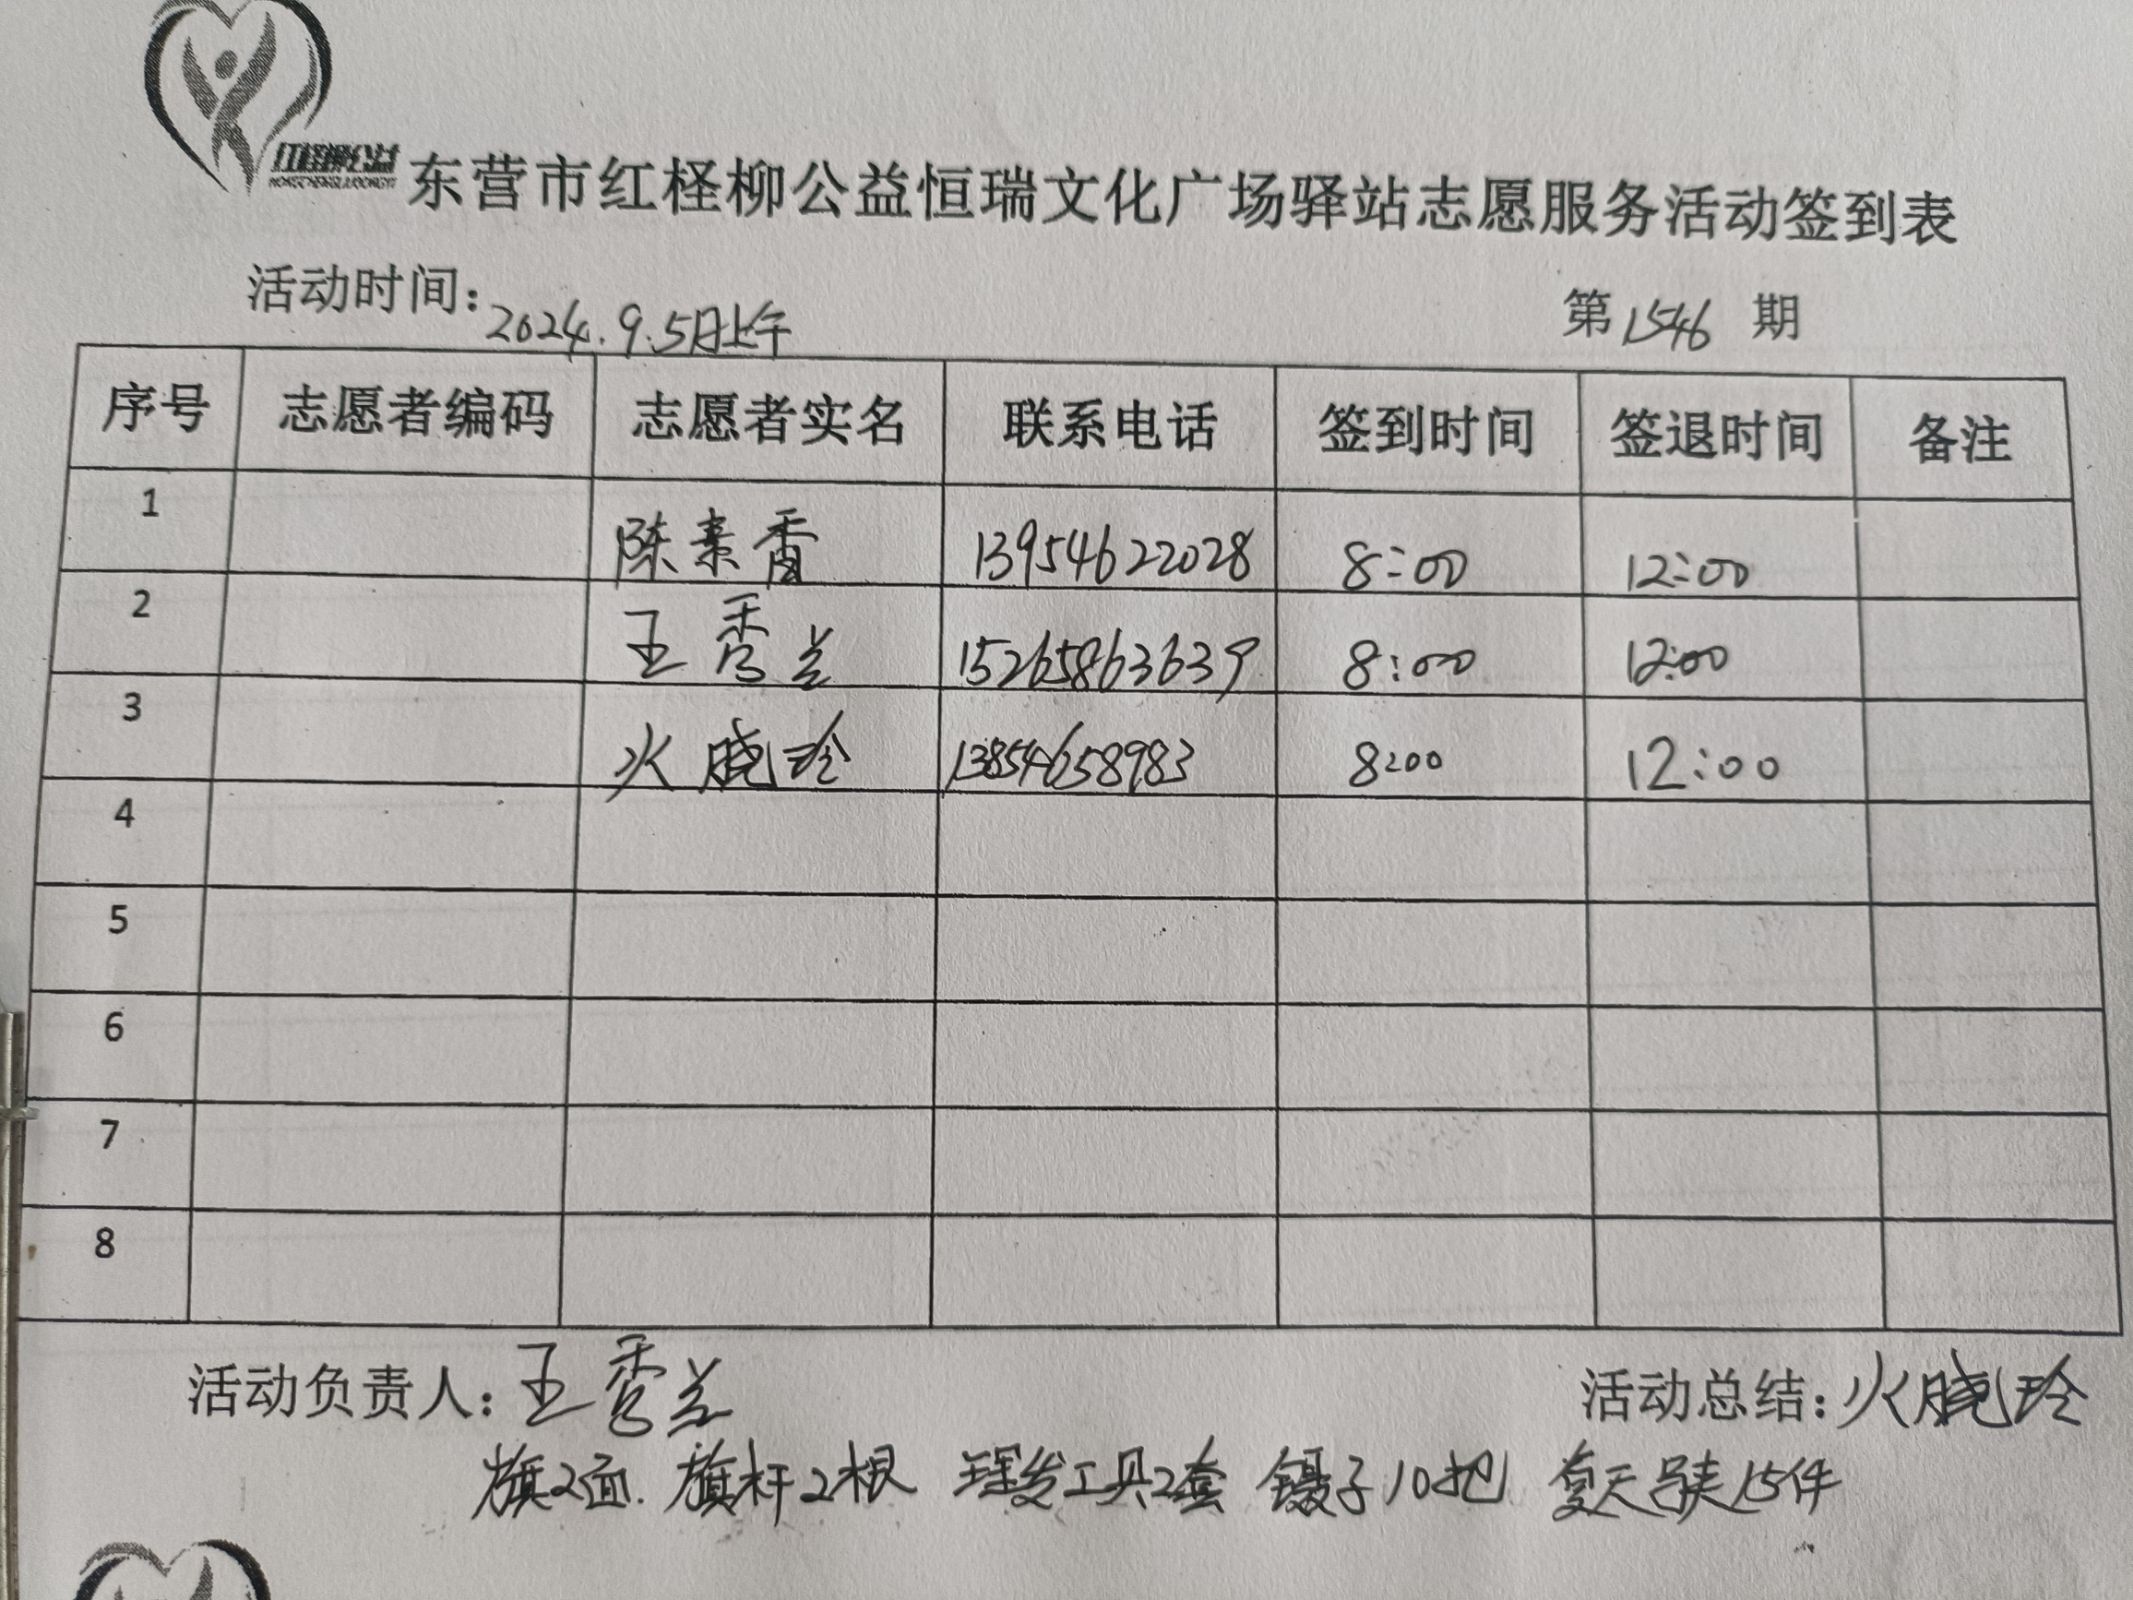 红柽柳公益
东营市红柽柳公益恒瑞文化广场驿站志愿服务活动签到表
活动时间：2024.9.5日上午 第1546期
序号 志愿者编码 志愿者实名 联系电话 签到时间 签退时间 备注
1 陈素香 13954622028 8:00 12:00
2 王秀兰 15265863639 8:00 12:00
3 火晓玲 13854658983 8:00 12:00
4
5
6
7
8
活动负责人：王秀兰 活动总结：火晓玲
旗2面. 旗杆2根 理发工具2套 镊子10把 夏天马夹15件